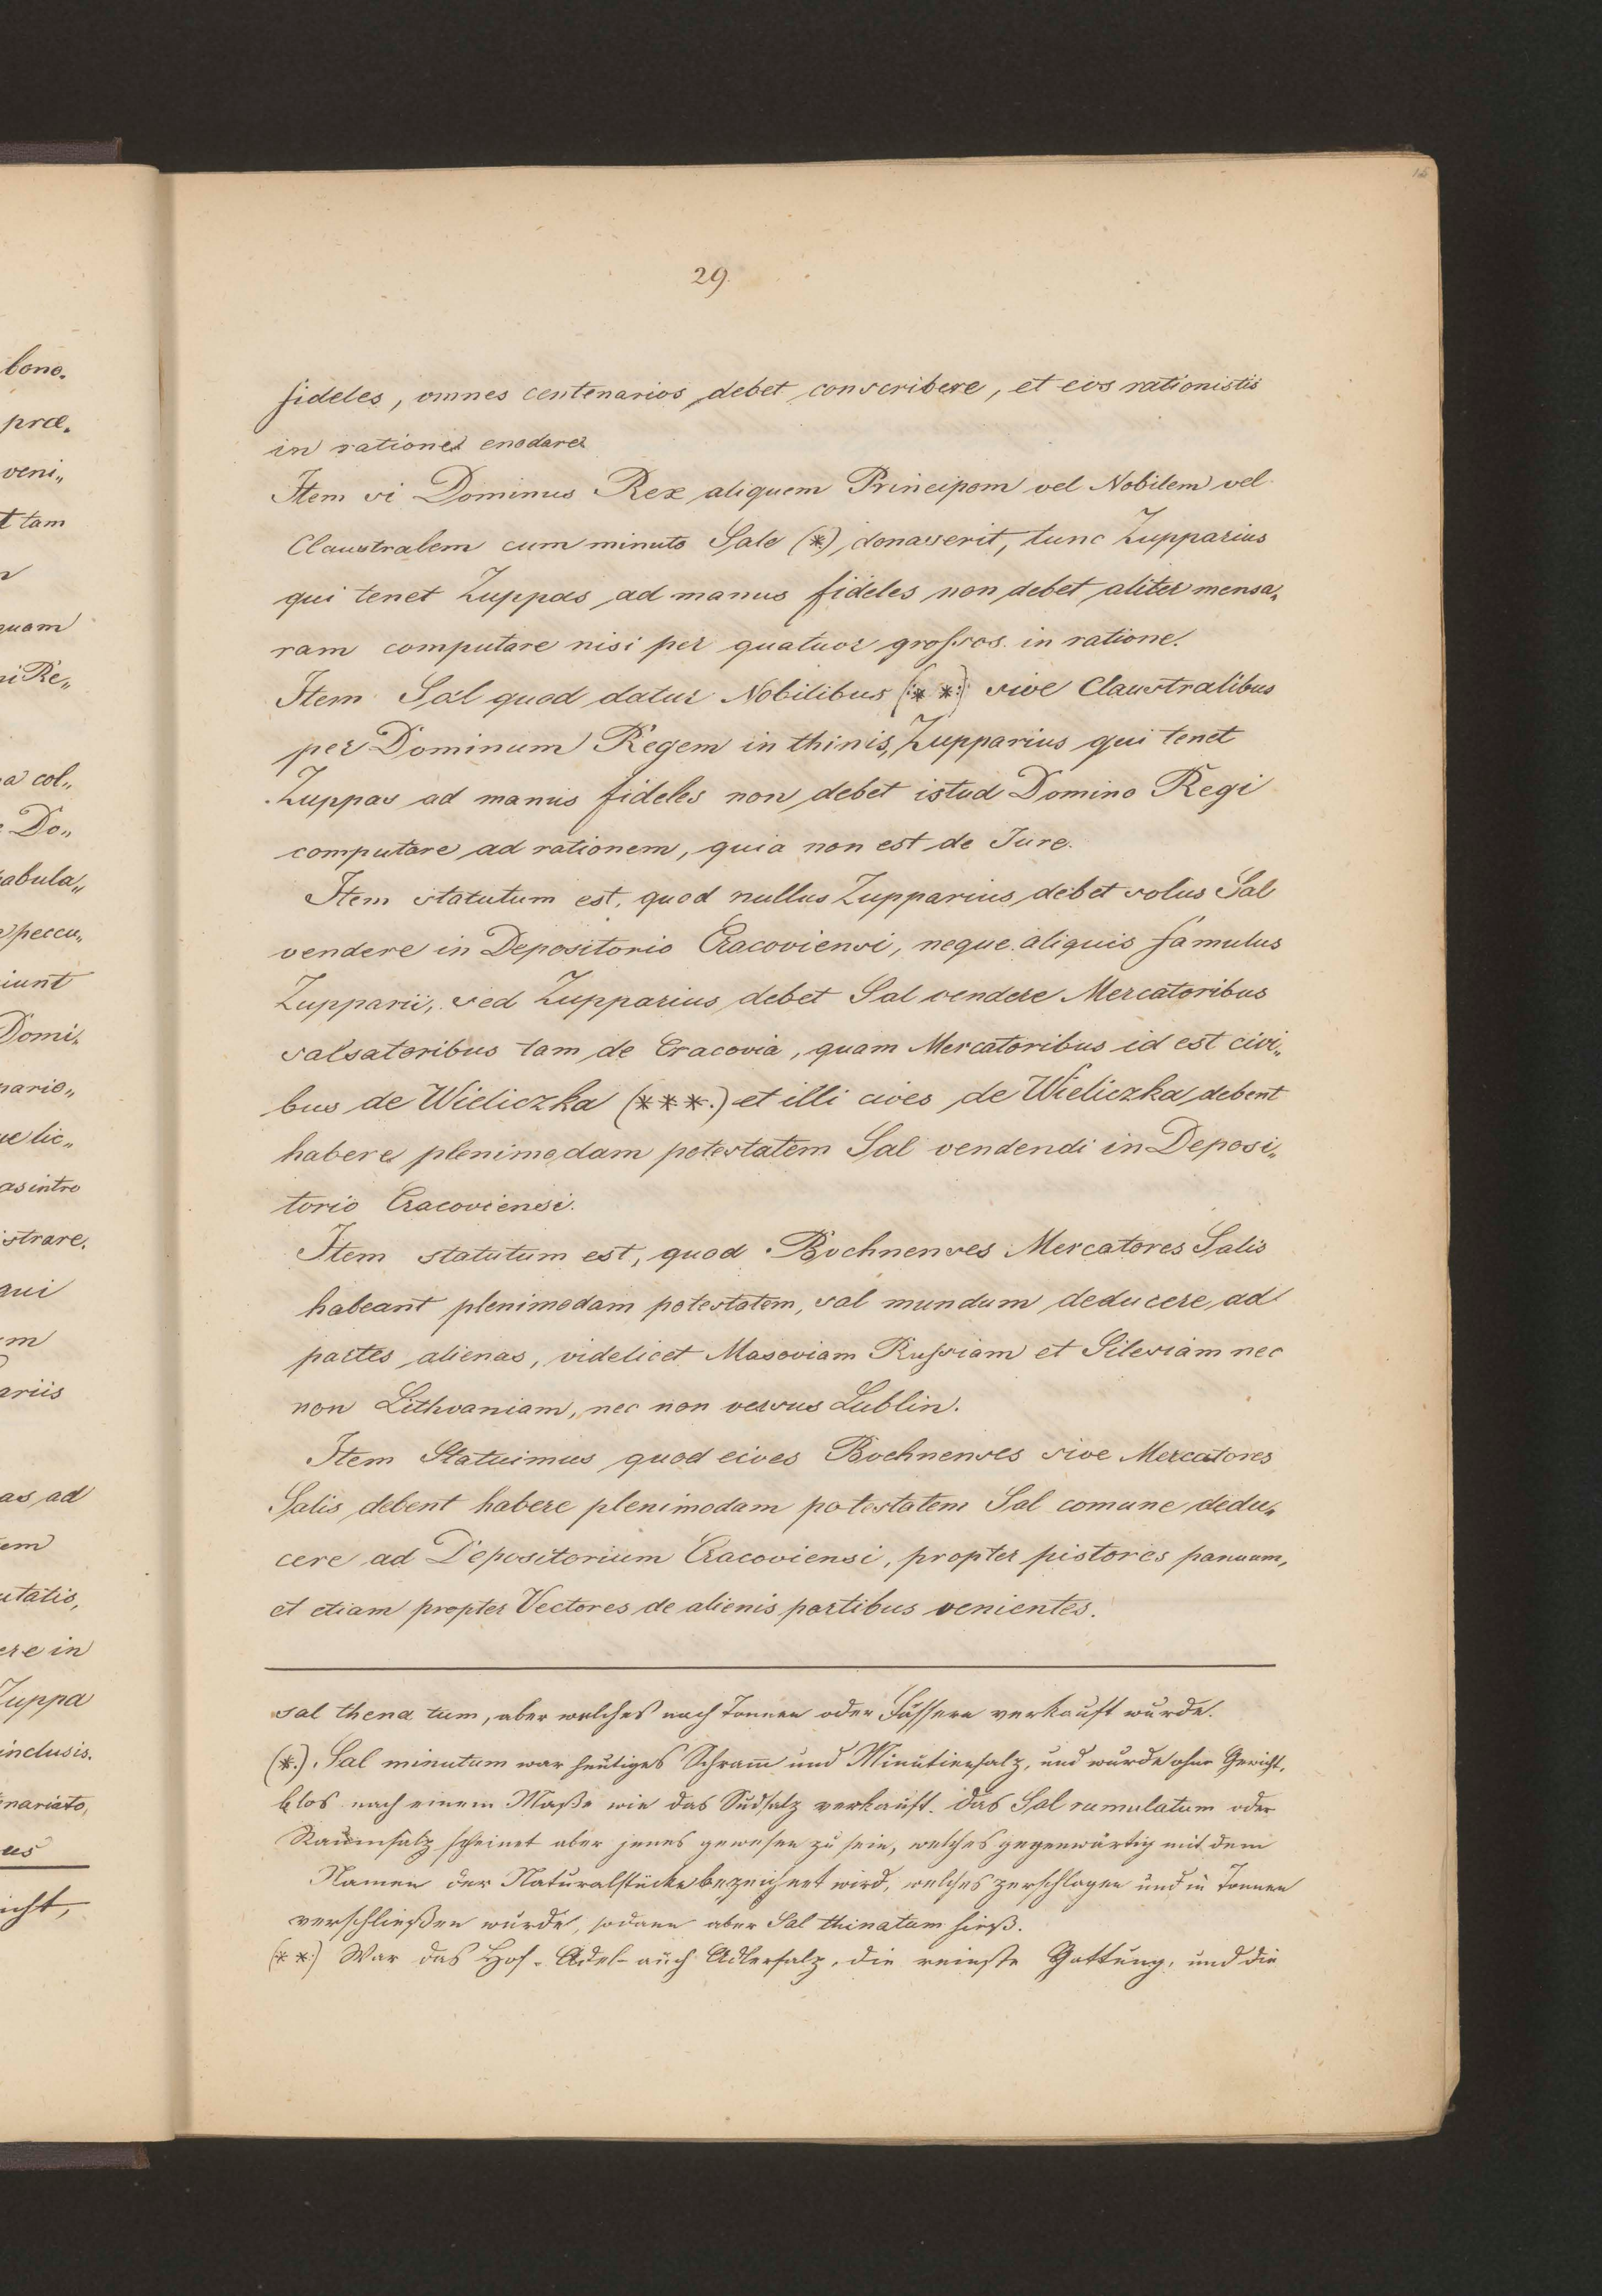 15
29.
fideles, omnes centenarios debet conscribere, et eos rationistis
in rationes enodare.
Item si Dominus Rex aliquem Principem vel Nobilem vel
Claustralem cum minuto Sale (*) donaverit, tunc Zupparius
qui tenet Zuppas ad manus fideles non debet aliter mensa„
ram computare nisi per quatuor grossos in ratione.
Item Sal quod datur Nobilibus (:**:) sive Claustralibus
per Dominum Regem in thinis, Zupparius qui tenet
Zuppas ad manus fideles non debet istud Domino Regi
computare ad rationem, quia non est de Jure.
Item statutum est, quod nullus Zupparius debet solus Sal
vendere in Depositorio Cracoviensi, neque aliquis famulus
Zupparii, sed Zupparius debet Sal vendere Mercatoribus
salsatoribus tam de Cracovia, quam Mercatoribus id est civi„
bus de Wieliczka (***.) et illi cives de Wieliczka debent
habere plenimodam potestatem Sal vendendi in Deposi„
torio Cracoviensi.
Item statutum est, quod Bochnenses Mercatores Salis
habeant plenimodam potestatem, sal mundum deducere ad
partes alienas, videlicet Masoviam Russiam et Silesiam nec
non Lithvaniam, nec non versus Lublin.
Item Statuimus quod cives Bochnenses sive Mercatores
Salis debent habere plenimodam potestatem Sal comune dedu„
cere ad Depositorium Cracoviensi, propter pistores panuum,
et etiam propter Vectores de alienis partibus venientes.
sal thena tum, aber welches nach Tonnen oder Fässern verkauft wurde.
(*.) Sal minutum war heutiges Schram̄ und Minutiensalz, und wurde ohne Gewicht,
blos nach einem Maße wie das Sudsalz verkauft. Das Sal rumulatum oder
Raumsalz scheinet aber jenes gewesen zu sein, welches gegenwärtig mit dem
Namen der Naturalstücke bezeichnet wird, welches zerschlagen und in Tonnen
verschließen wurde, sodann aber Sal thinatum hieß.
(**:) War das Hof- Adel- auch Adlersalz, die reinste Gattung, und die